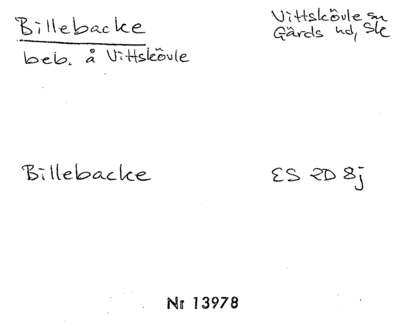 Billebacke
Vittskövle sn
Gärds hd, Sk
beb. å Vittskövle
Billebacke
ES 2D 8j
Nr 13978